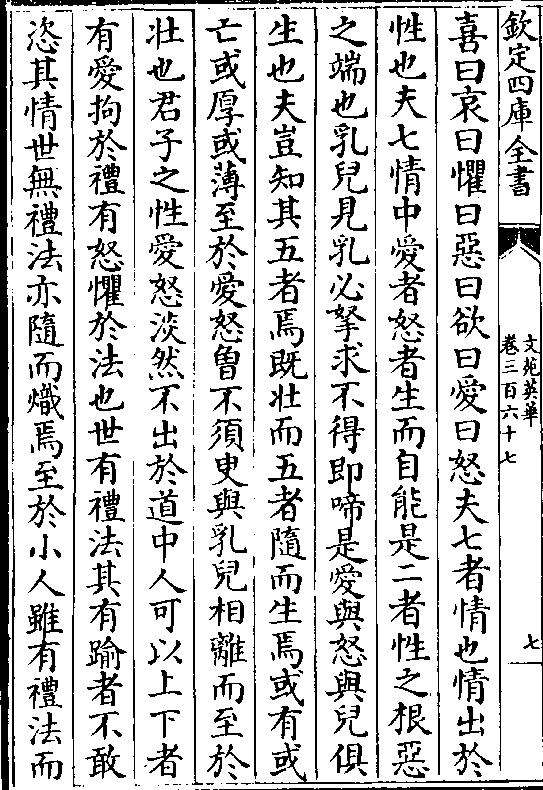 欽定四庫全書
文苑英華
卷三百六十七
七
喜曰哀曰懼曰惡曰欲曰愛曰怒夫七者情也情出於
性也夫七情中愛者怒者生而自能是二者性之根惡
之端也乳兒見乳必拏求不得即啼是愛與怒與兒俱
生也夫豈知其五者焉既壯而五者隨而生焉或有或
亡或厚或薄至於愛怒曾不須臾與乳兒相離而至於
壯也君子之性愛怒淡然不出於道中人可以上下者
有愛拘於禮有怒懼於法也世有禮法其有踰者不敢
恣其情世無禮法亦隨而熾焉至於小人雖有禮法而